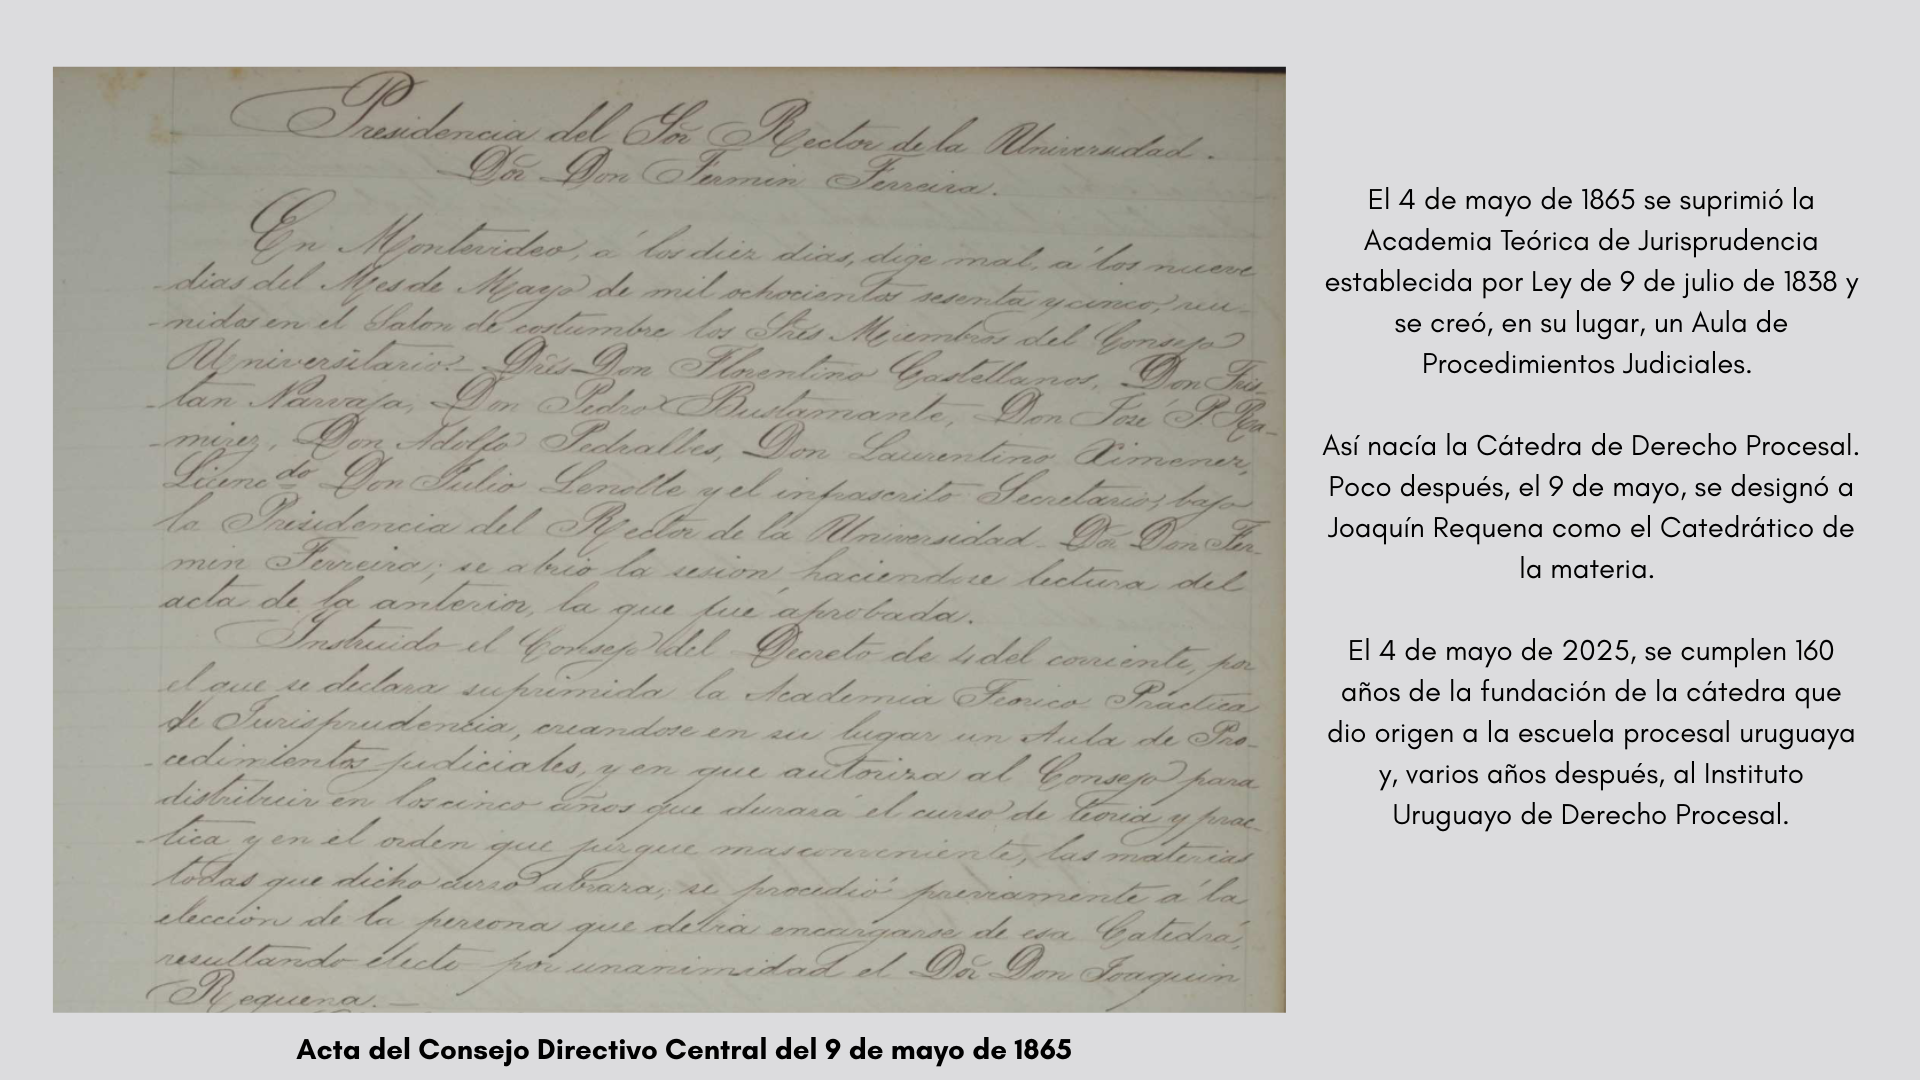 Presidencia del Sor Rector de la Universidad.
Dor Don Fermin Ferreira.
En Montevideo, á los diez dias, dige mal, á los nueve
dias del Mes de Mayo de mil ochocientos sesenta y cinco, reu-
nidos en el Salon de costumbre los Sres Miembros del Consejo
Universitario. Dres Don Florentino Castellanos, Don Tris-
tan Narvaja, Don Pedro Bustamante, Don José P. Ra-
mirez, Don Adolfo Pedralbes, Don Laurentino Ximenez,
Licencdo Don Julio Lenoble y el infrascrito Secretario; bajo
la Presidencia del Rector de la Universidad Dor Don Fer-
min Ferreira; se abrio la sesion haciendose lectura del
acta de la anterior, la que fué aprobada.
Instruido el Consejo del Decreto de 4 del corriente, por
el que se declara suprimida la Academia Teorico Practica
de Jurisprudencia, creandose en su lugar un Aula de Pro-
cedimientos judiciales, y en que autoriza al Consejo para
distribuir en los cinco años que durará el curso de teoria y prac-
tica y en el orden que juzgue mas conveniente, las materias
todas que dicho curso abrara, se procedió previamente á la
elección de la persona que debia encargarse de esa Catedra,
resultando electo por unanimidad el Dor Don Joaquin
Requena.
Acta del Consejo Directivo Central del 9 de mayo de 1865
El 4 de mayo de 1865 se suprimió la
Academia Teórica de Jurisprudencia
establecida por Ley de 9 de julio de 1838 y
se creó, en su lugar, un Aula de
Procedimientos Judiciales.
Así nacía la Cátedra de Derecho Procesal.
Poco después, el 9 de mayo, se designó a
Joaquín Requena como el Catedrático de
la materia.
El 4 de mayo de 2025, se cumplen 160
años de la fundación de la cátedra que
dio origen a la escuela procesal uruguaya
y, varios años después, al Instituto
Uruguayo de Derecho Procesal.